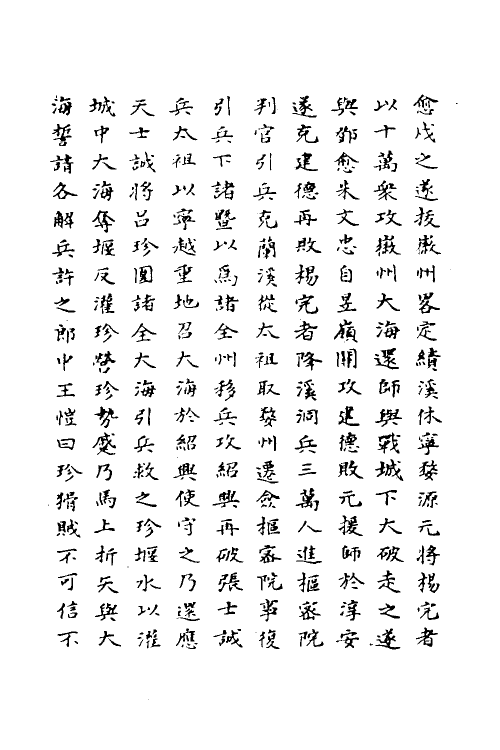 愈戍之遂拔徽州畧定績溪休寧婺源元將楊完者
以十萬衆攻徽州大海還師與戰城下大破走之遂
與鄧愈朱文忠自昱嶺關攻建德敗元援師於淳安
遂克建德再敗楊完者降溪洞兵三萬人進樞密院
判官引兵克蘭溪從太祖取婺州遷僉樞密院事復
引兵下諸暨以爲諸全州移兵攻紹興再破張士誠
兵太祖以寧越重地召大海於紹興使守之乃還應
天士誠將呂珍圍諸全大海引兵救之珍堰水以灌
城中大海奪堰反灌珍營珍勢蹙乃馬上折矢與大
海誓請各解兵許之郎中王愷曰珍猾賊不可信不